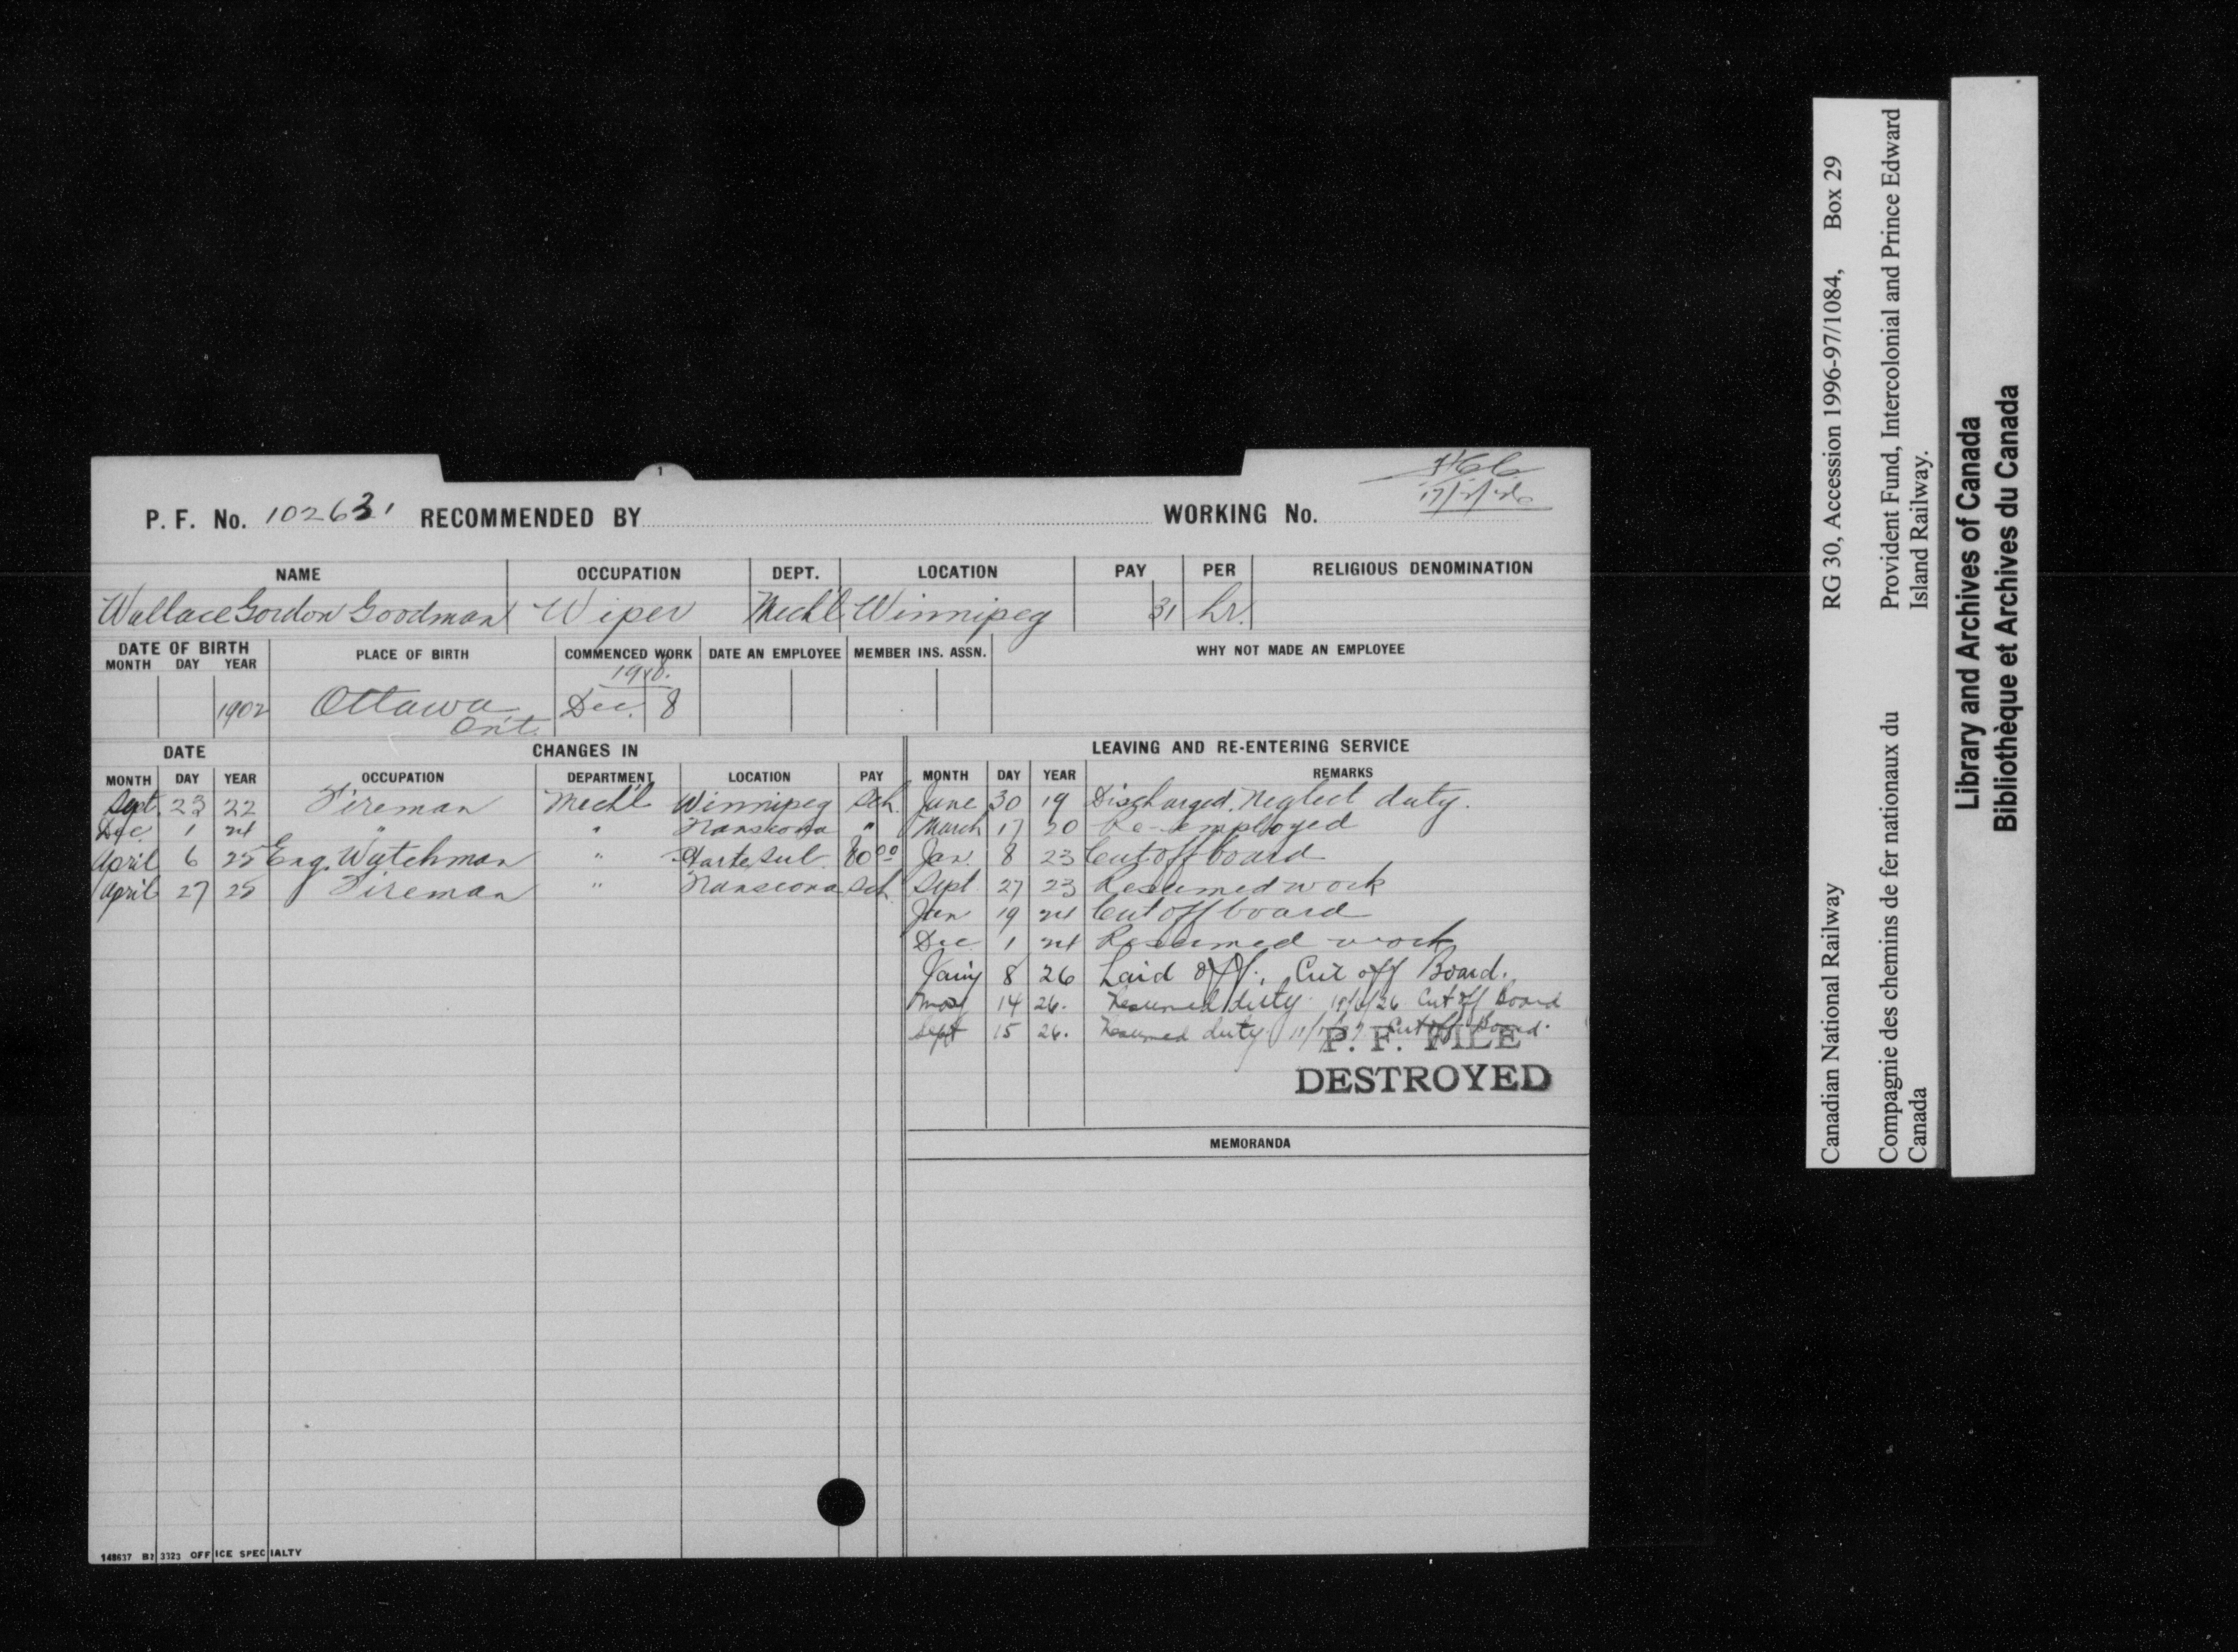 P. F. No. 102631 RECOMMENDED BY WORKING No.
NAME OCCUPATION DEPT. LOCATION PAY PER RELIGIOUS DENOMINATION
Wallace Gordon Goodman Wiper Mechl Winnipeg 31 hr.
DATE OF BIRTH PLACE OF BIRTH COMMENCED WORK DATE AN EMPLOYEE MEMBER INS. ASSN. WHY NOT MADE AN EMPLOYEE
MONTH DAY YEAR
1902 Ottawa Dec. 8
Ont.
DATE CHANGES IN LEAVING AND RE-ENTERING SERVICE
MONTH DAY YEAR OCCUPATION DEPARTMENT LOCATION PAY MONTH DAY YEAR REMARKS
Sept. 23 22 Fireman Mech'l Winnipeg Sch. June 30 19 Discharged. Neglect duty.
Dec. 1 24 " " Transcona " March 17 20 Re-employed
April 6 25 Eng. Watchman " Harte Sub. 80 00 Jan. 8 23 Cut off board
April 27 25 Fireman " Transcona Sch. Sept 27 23 Resumed work
Jan 19 24 Cut off board
Dec. 1 24 Resumed work
8 26 Laid off. Cut off Board.
14 26. Resumed duty. 19/6/26 Cut off Board
Sept 15 26. Resumed duty Cut off Board.
P. F. FILE
DESTROYED
MEMORANDA
148637 B2 3323 OFFICE SPECIALTY
1
Canadian National Railway RG 30, Accession 1996-97/1084, Box 29
Compagnie des chemins de fer nationaux du Canada Provident Fund, Intercolonial and Prince Edward Island Railway.
Library and Archives of Canada
Bibliothèque et Archives du Canada